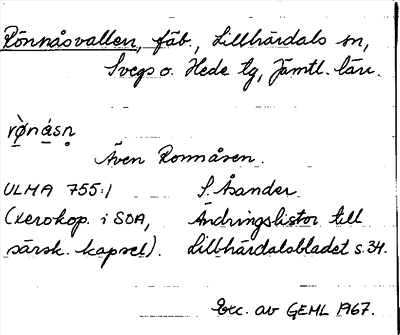 Rönnåsvallen, fäb., Lillhärdals sn,
Svegs o. Hede tg, Jämtl. län.
rø̀nåsn̥
Även Ronnåsen.
ULMA 755:1 S. Åsander
(xerokop. i SOA, Ändringslistor till
särsk. kapsel). Lillhärdalsbladet s. 34.
Exc. av GEHL 1967.